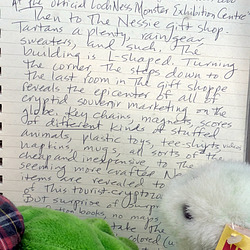 At the official Loch Ness Monster Exhibition Centre
Then to the Nessie gift shop.
Tartans a plenty, rain gear
sweaters, and such. The
building is L-shaped. Turning
the corner, the steps down to
the last room in the gift shoppe
reveals the epicenter of all of
cryptid souvenir marketing on the
globe. Key chains, magnets, scores
of different kinds of stuffed
animals, plastic toys, tee-shirts,
napkins, mugs, all sorts of
cheap and inexpensive to the
seeming more crafted
items are revealed to
of this tourist-cryptozoo
But surprise of surpri
books, no maps
take the
colored